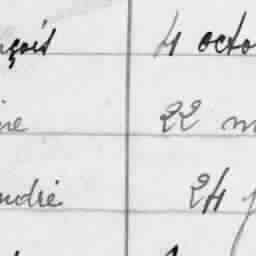 nçois 4 octo
ine 22 m
ndré 24